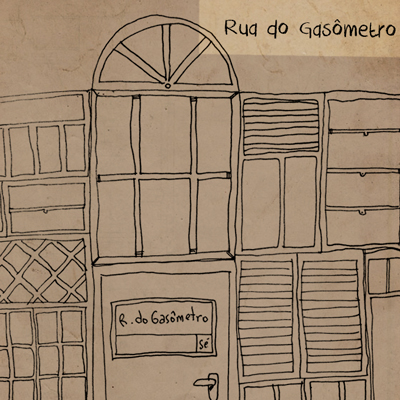 Rua do Gasômetro
R. do Gasômetro
Sé